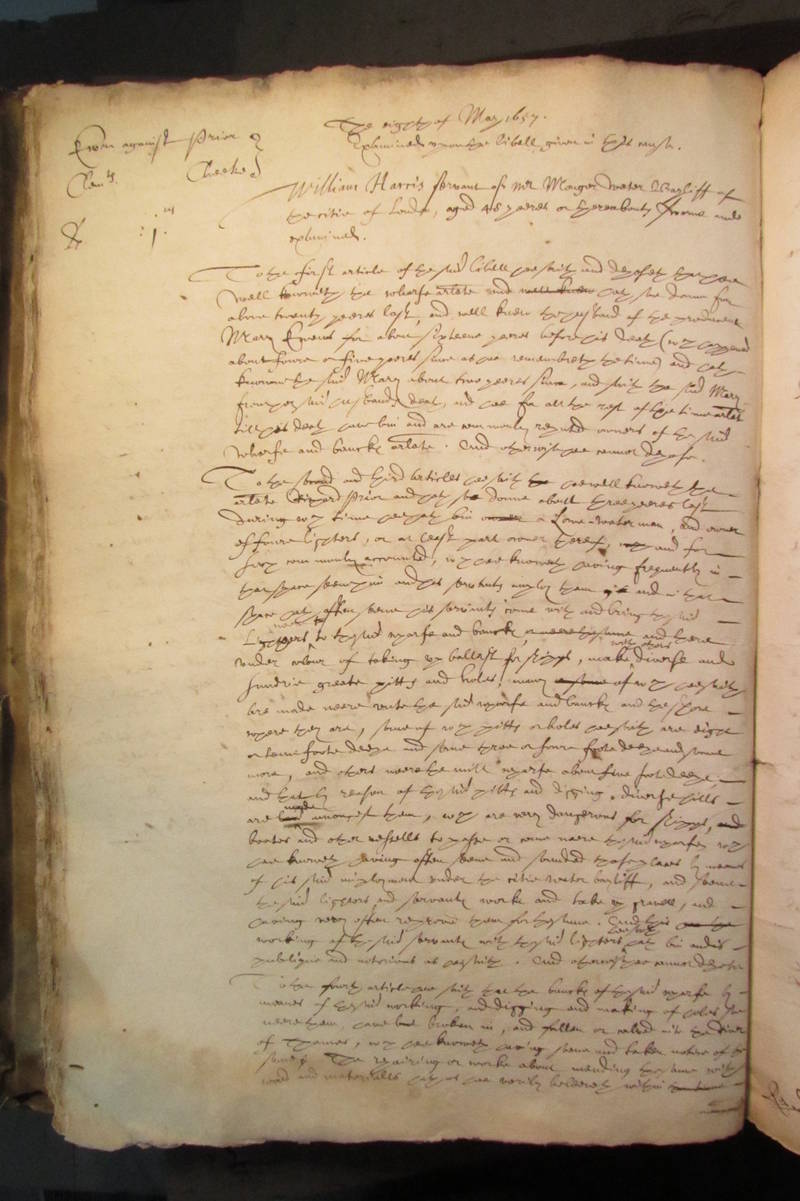 The eighth of May 1657.
Examined upon the libell given in this cause.
Ewen against Prior
Clem's. Cheeke
William Harris servant of Mr Waterbayliff of
the citie of London, aged 48 yeeres or thereabouts sworne and
examined.
To the first article of the said libell hee saith and deposeth that hee
well knoweth the wharfe arlate and hath soe donne for
above twenty yeeres last, and well knew the husband of the producent
Mary Ewens for about sixteene yeeres before his death (which happened
about foure or five yeeres since as hee remembreth the time) and hath
knowne the said Mary about two yeeres since, and saith the said Mary
from her said husbands death, and hee for all the rest of the time arlate
till his death have bin and are commonly reputed owners of the said
wharfe and bancks arlate. And otherwise hee cannot depose.
To the second and third articles hee saith hee well knoweth the
arlate Prior and hath soe donne about three yeeres last
during which time hee hath bin a waterman, and owner
of foure lighters, or at least part owner thereof, and for
such commonly accounted, which hee knoweth having frequently in
that space seene him and his servants imploy them and in that
space hath often seene his servants come with and bring the said
Lighters to the said wharfe and bancks, and there
under colour of taking up ballast for shipps, make diverse and
with others
sundrie greate pitts and holes, many of which hee saith
are made neere unto the said wharfe and bancks and the shore
where they are, some of which pitts or holes hee saith are eight
or tenne foote deepe and some three or foure foote deepe and some
more, and others neere the wharfe about five foot deepe,
and that by reason of the said pitts and digging, diverse hills
are made amongst them, which are very dangerous for shipps,
boates and other vessells to passe or come neere the said wharfes which
hee knoweth having often seene and sounded those places by meanes
of his said imployment under the citie water bayliff, and seene
the said lighters and servants worke and take up gravell, and
having very often reprooved them for the same. And this
working of the said servants with the said lighters hee saith hath bin and is
publique and notorious as hee saith. And otherwise hee cannot depose
To the fourth article hee saith that the bancks of the said wharfe by
meanes of the said working, and digging and making of holes soe
neere them, have bin broken in, and fallen or into the River
of Thames, which hee knoweth having seene and taken notice of the
same. The repairing or worke about mending the same with
and materialls hath as hee verily beleeveth within